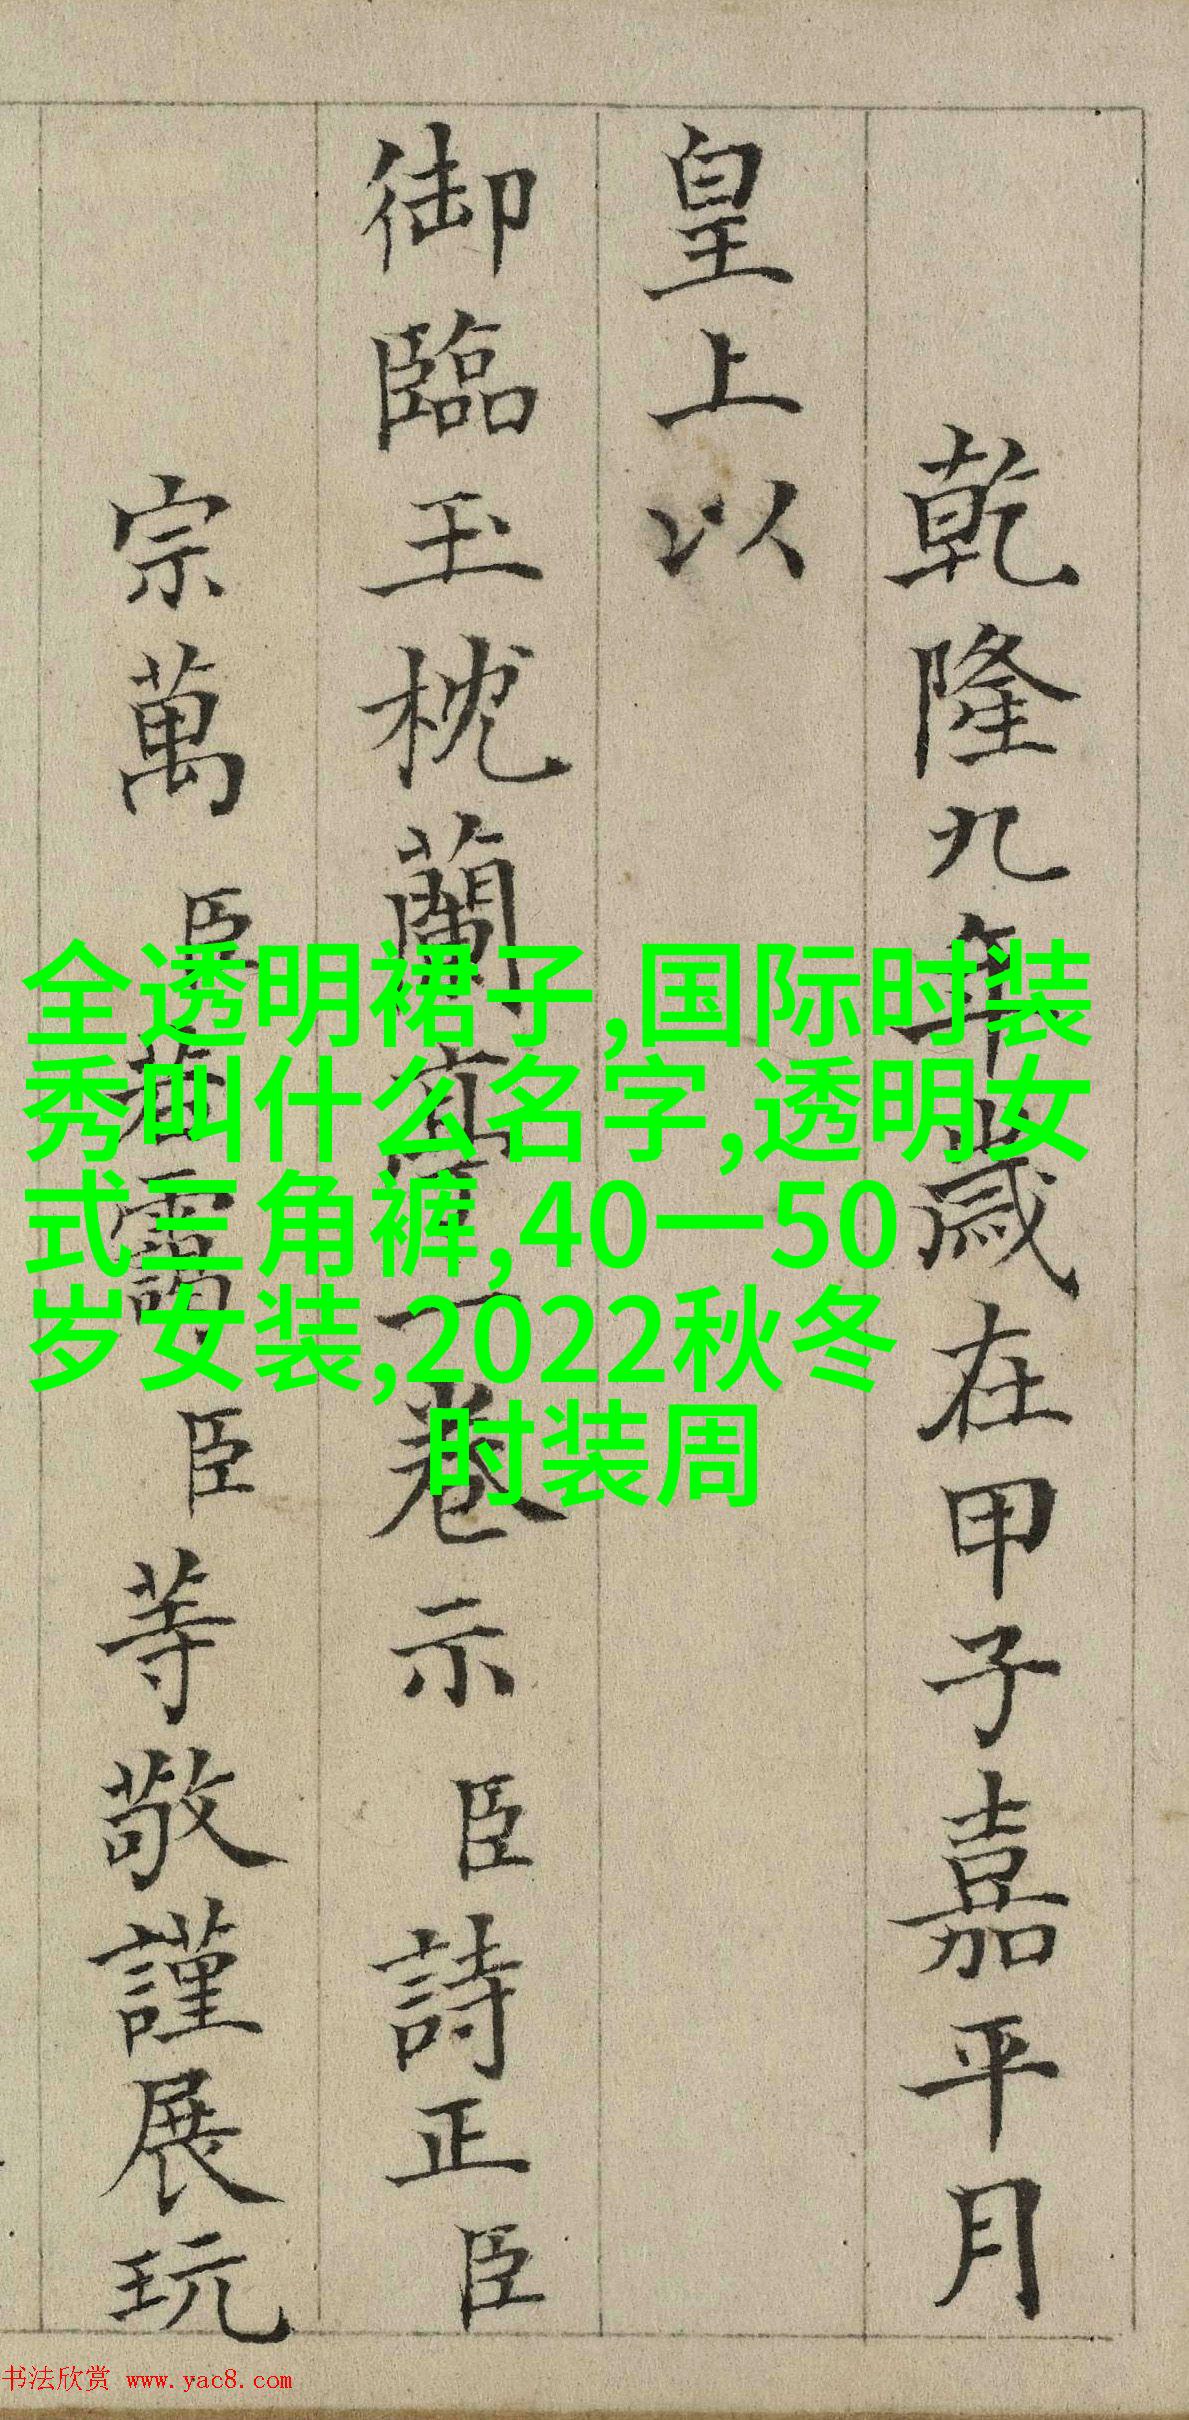 乾隆九年歲在甲子嘉平月
皇上以
御臨玉枕蘭亭一卷示臣詩正臣
宗萬臣若靄臣等敬謹展玩
全透明裙子,国际时装
秀叫什么名字,透明女
式三角裤,40一50
岁女装,2022秋冬
时装周
书法欣赏 www.yac8.com